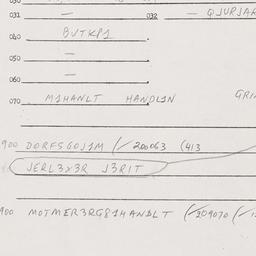 030
031 — 032 — QJURJAR
040 BUTKP1
050 —
060 —
070 M1HANLT HANDL1N GRI
900 DORFSGOJ1M (/200063 (413
JERL3X3R J3RIT
900 MOTMER3RG814ANDLT (/209070 (/1